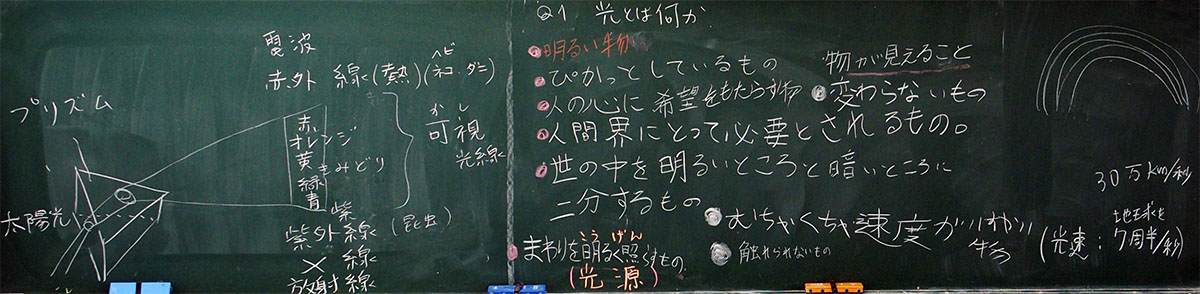 プリズム
太陽光
電波
赤外線(熱)(ヘビ ネコ ダニ)
赤
オレンジ
黄
きみどり
緑
青
紫
かし
可視
光線
紫外線(昆虫)
X線
放射線
Q1 光とは何か
明るい物
ぴかっとしているもの
人の心に希望をもたらす物
人間界にとって必要とされるもの。
世の中を明るいところと暗いところに
二分するもの
こうげん
まわりを明るく照らすもの
(光源)
物が見えること
変わらないもの
むちゃくちゃ速度がはやい
物
触れられないもの
30万km/秒
(光速:地球を
7周半/秒)